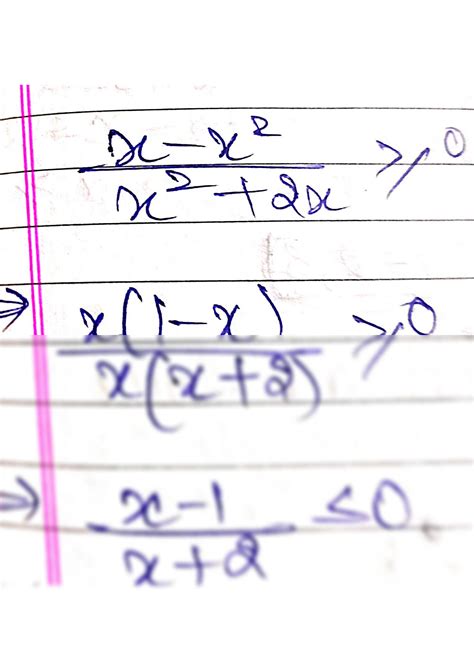 (x-x²)/(x²+2x) ≥ 0
⇒ x(1-x)/x(x+2) ≥ 0
⇒ (x-1)/(x+2) ≤ 0